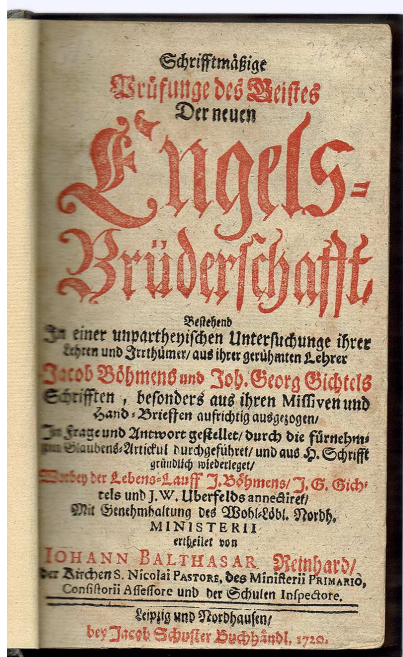 Schrifftmäßige
Prüfunge des Geistes
Der neuen
Engels-
Brüderschafft,
Bestehend
In einer unpartheyischen Untersuchunge ihrer
Lehren und Irrthümer/ aus ihrer gerühmten Lehrer
Jacob Böhmens und Joh. Georg Gichtels
Schrifften, besonders aus ihren Missiven und
Hand-Brieften aufrichtig ausgezogen/
In Frage und Antwort gestellet/ durch die fürnehm-
sten Glaubens-Artickul durchgeführet/ und aus H. Schrifft
gründlich wiederleget/
Worbey der Lebens-Lauff J. Böhmens/ J. G. Gich-
tels und J. W. Uberfelds annectiret/
Mit Genehmhaltung des Wohl-Löbl. Nordh.
MINISTERII
ertheilet von
IOHANN BALTHASAR Reinhard/
der Kirchen S. Nicolai PASTORE, des Ministerii PRIMARIO,
Consistorii Assessore und der Schulen Inspectore.
Leipzig und Nordhausen/
bey Jacob Schuster Buchhändl. 1720.